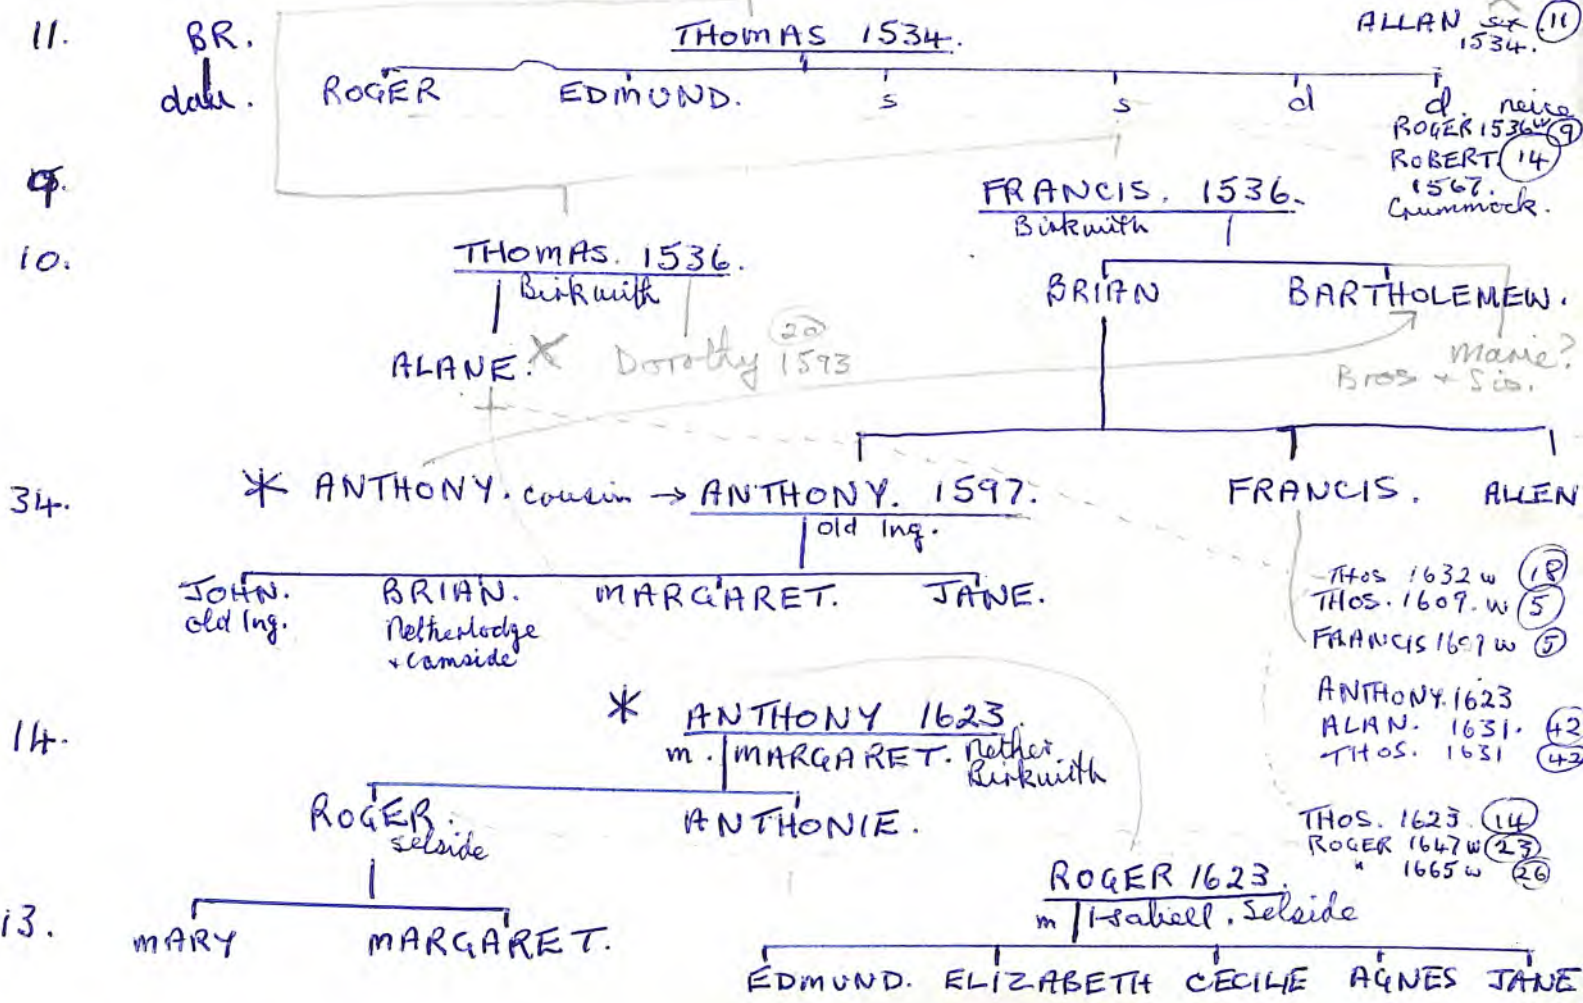 11. BR. THOMAS 1534. ALLAN 11
1534.
dau. ROGER EDMUND. s s d d. neice
ROGER 1536 w 9
ROBERT 14
1567.
Crummock.
9. FRANCIS. 1536.
Birkwith
10. THOMAS. 1536.
Birkwith
BRIAN BARTHOLEMEW.
ALANE. X Dorothy 20
1593
Marie?
Bros + Sis.
34. * ANTHONY. cousin → ANTHONY. 1597. FRANCIS. ALLEN
old Ing.
JOHN. BRIAN. MARGARET. JANE.
old Ing. Netherlodge
+ Camside
THOS 1632 w 18
THOS. 1609. w 5
FRANCIS 1609 w 5
ANTHONY. 1623
ALAN. 1631. 42
THOS. 1631 42
14. * ANTHONY 1623.
m. MARGARET. Nether
Birkwith
ROGER. ANTHONIE.
Selside
THOS. 1623. 14
ROGER 1647 w 23
" 1665 w 26
ROGER 1623.
m Isabell. Selside
13. MARY MARGARET.
EDMUND. ELIZABETH CECILIE AGNES JANE